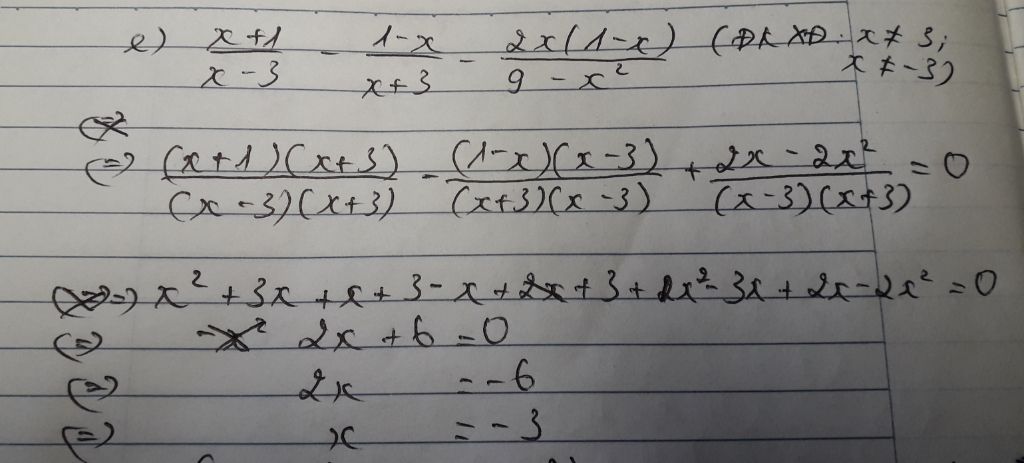 e) \frac{x+1}{x-3} - \frac{1-x}{x+3} - \frac{2x(1-x)}{9-x^2} (ĐKXĐ: x ≠ 3; x ≠ -3)
(=) \frac{(x+1)(x+3)}{(x-3)(x+3)} - \frac{(1-x)(x-3)}{(x+3)(x-3)} + \frac{2x-2x^2}{(x-3)(x+3)} = 0
=) x^2 + 3x + x + 3 - x + 3 + x^2 - 3x + 2x - 2x^2 = 0
(=) 2x + 6 = 0
(=) 2x = -6
(=) x = -3